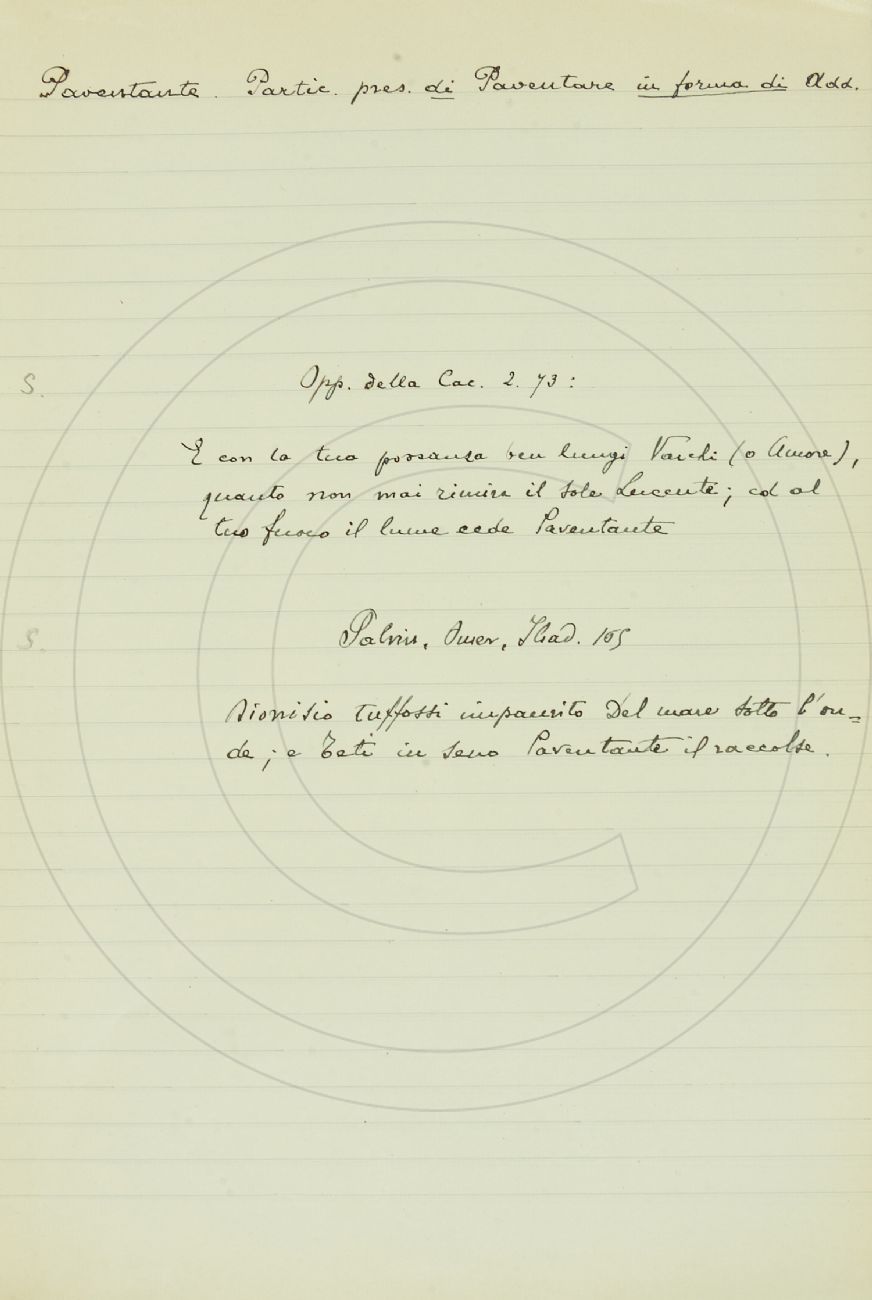 Paventante. Partic. pres. di Paventare in forma di Add.
S. Opp. della Cac. 2. 73 :
E con la tua possanza ben lungi Varchi (o Amore),
quanto non mai rimira il Sole Lucente; ed al
tuo fuoco il lume cede Paventante
S. Salvin, Omer, Iliad. 165
Dionisio tuffossi impaurito Del mare sotto l'on=
de; e Teti in seno Paventante il raccolse.